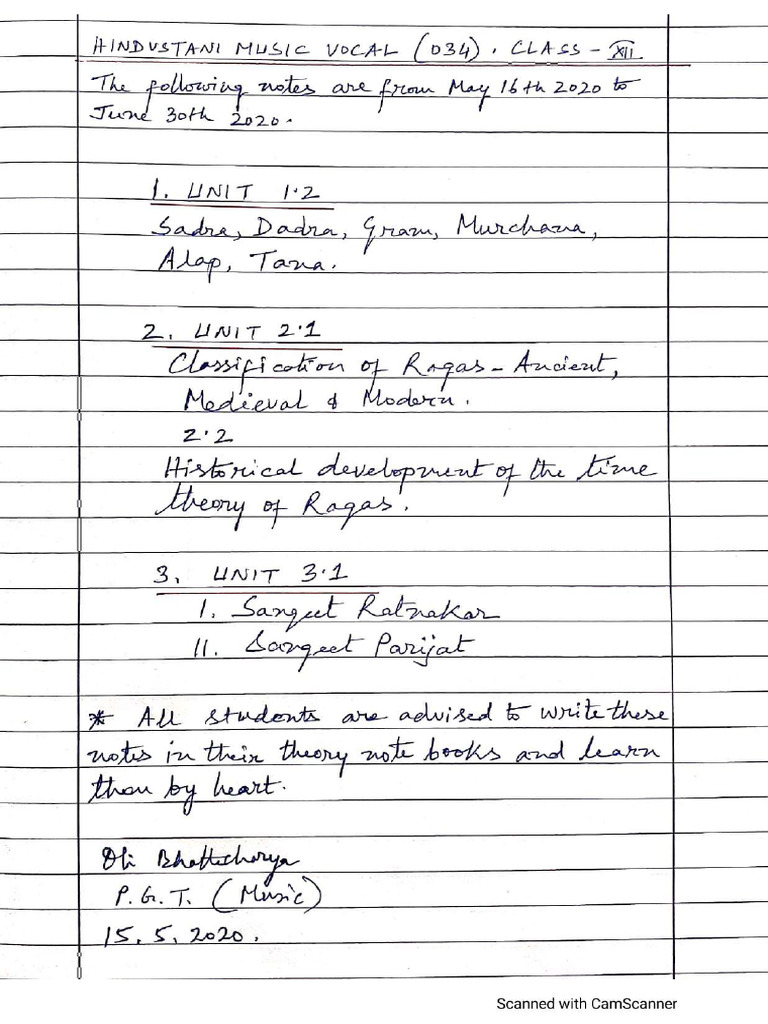 HINDUSTANI MUSIC VOCAL (034). CLASS - XII
The following notes are from May 16th 2020 to
June 30th 2020.
1. UNIT 1.2
Sadra, Dadra, Gram, Murchana,
Alap, Tana.
2. UNIT 2.1
Classification of Ragas - Ancient,
Medieval & Modern.
2.2
Historical development of the time
theory of Ragas.
3. UNIT 3.1
I. Sangeet Ratnakar
II. Sangeet Parijat
* All students are advised to write these
notes in their theory note books and learn
them by heart.
Oli Bhattacharya
P.G.T. (Music)
15.5.2020.
Scanned with CamScanner